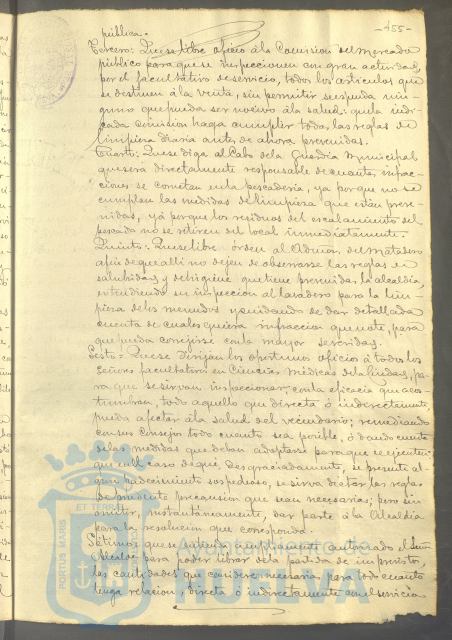 -455-
pública.
Tercero: Que se libre oficio á la Comision del mercado
público para que se inspeccionen con gran actividad,
por el facultativo de servicio, todos los articulos que
se destinen á la venta, sin permitir se expenda nin-
guno que pueda ser nocivo á la salud: que la indi-
cada comision haga cumplir todas las reglas de
limpieza diaria antes de ahora prevenidas.
Cuarto: Que se diga al Cabo de la Guardia Municipal
que será directamente responsable de cuantas infrac-
ciones se cometan en la pescadería, ya porque no se
cumplan las medidas de limpieza que están preve-
nidas, yá porque los residuos del escalamiento del
pescado no se retiren del local inmediatamente.
Quinto: Que se libre orden al Admor. del Matadero
afin de que alli no dejen de observarse las reglas de
salubridad y de higiene que tiene prevenidas la alcaldia,
extendiendo su inspeccion al lavadero para la lim-
pieza de los menudos y cuidando de dar detallada
cuenta de cualesquiera infraccion que note, para
que pueda corregirse con la mayor severidad.
Sesto= Que se dirijan los oportunos oficios á todos los
Señores facultativos en Ciencias Médicas de la Ciudad, pa-
ra que se sirvan inspeccionar, con la eficacia que acos-
tumbran, todo aquello que directa ó indirectamente
pueda afectar á la salud del vecindario; remediando
con sus consejos todo cuanto sea posible, ó dando cuenta
de las medidas que deban adoptarse para que se ejecuten:
que en el caso de que, desgraciadamente, se presente al-
gun padecimiento sospechoso, se sirva dictar las reglas
de prudente precaucion que sean necesarias; pero sin
omitir, instantáneamente, dar parte á la Alcaldia
para la resolucion que corresponda.
Sétimo: que se entienda ampliamente autorizado el Señor
Alcalde para poder librar de la partida de imprevistos,
las cantidades que considere necesarias para todo cuanto
tenga relacion, directa ó indirectamente con el servicio
PORTUS MARIS
ET TERRAE
Ayuntamiento de
HUELVA